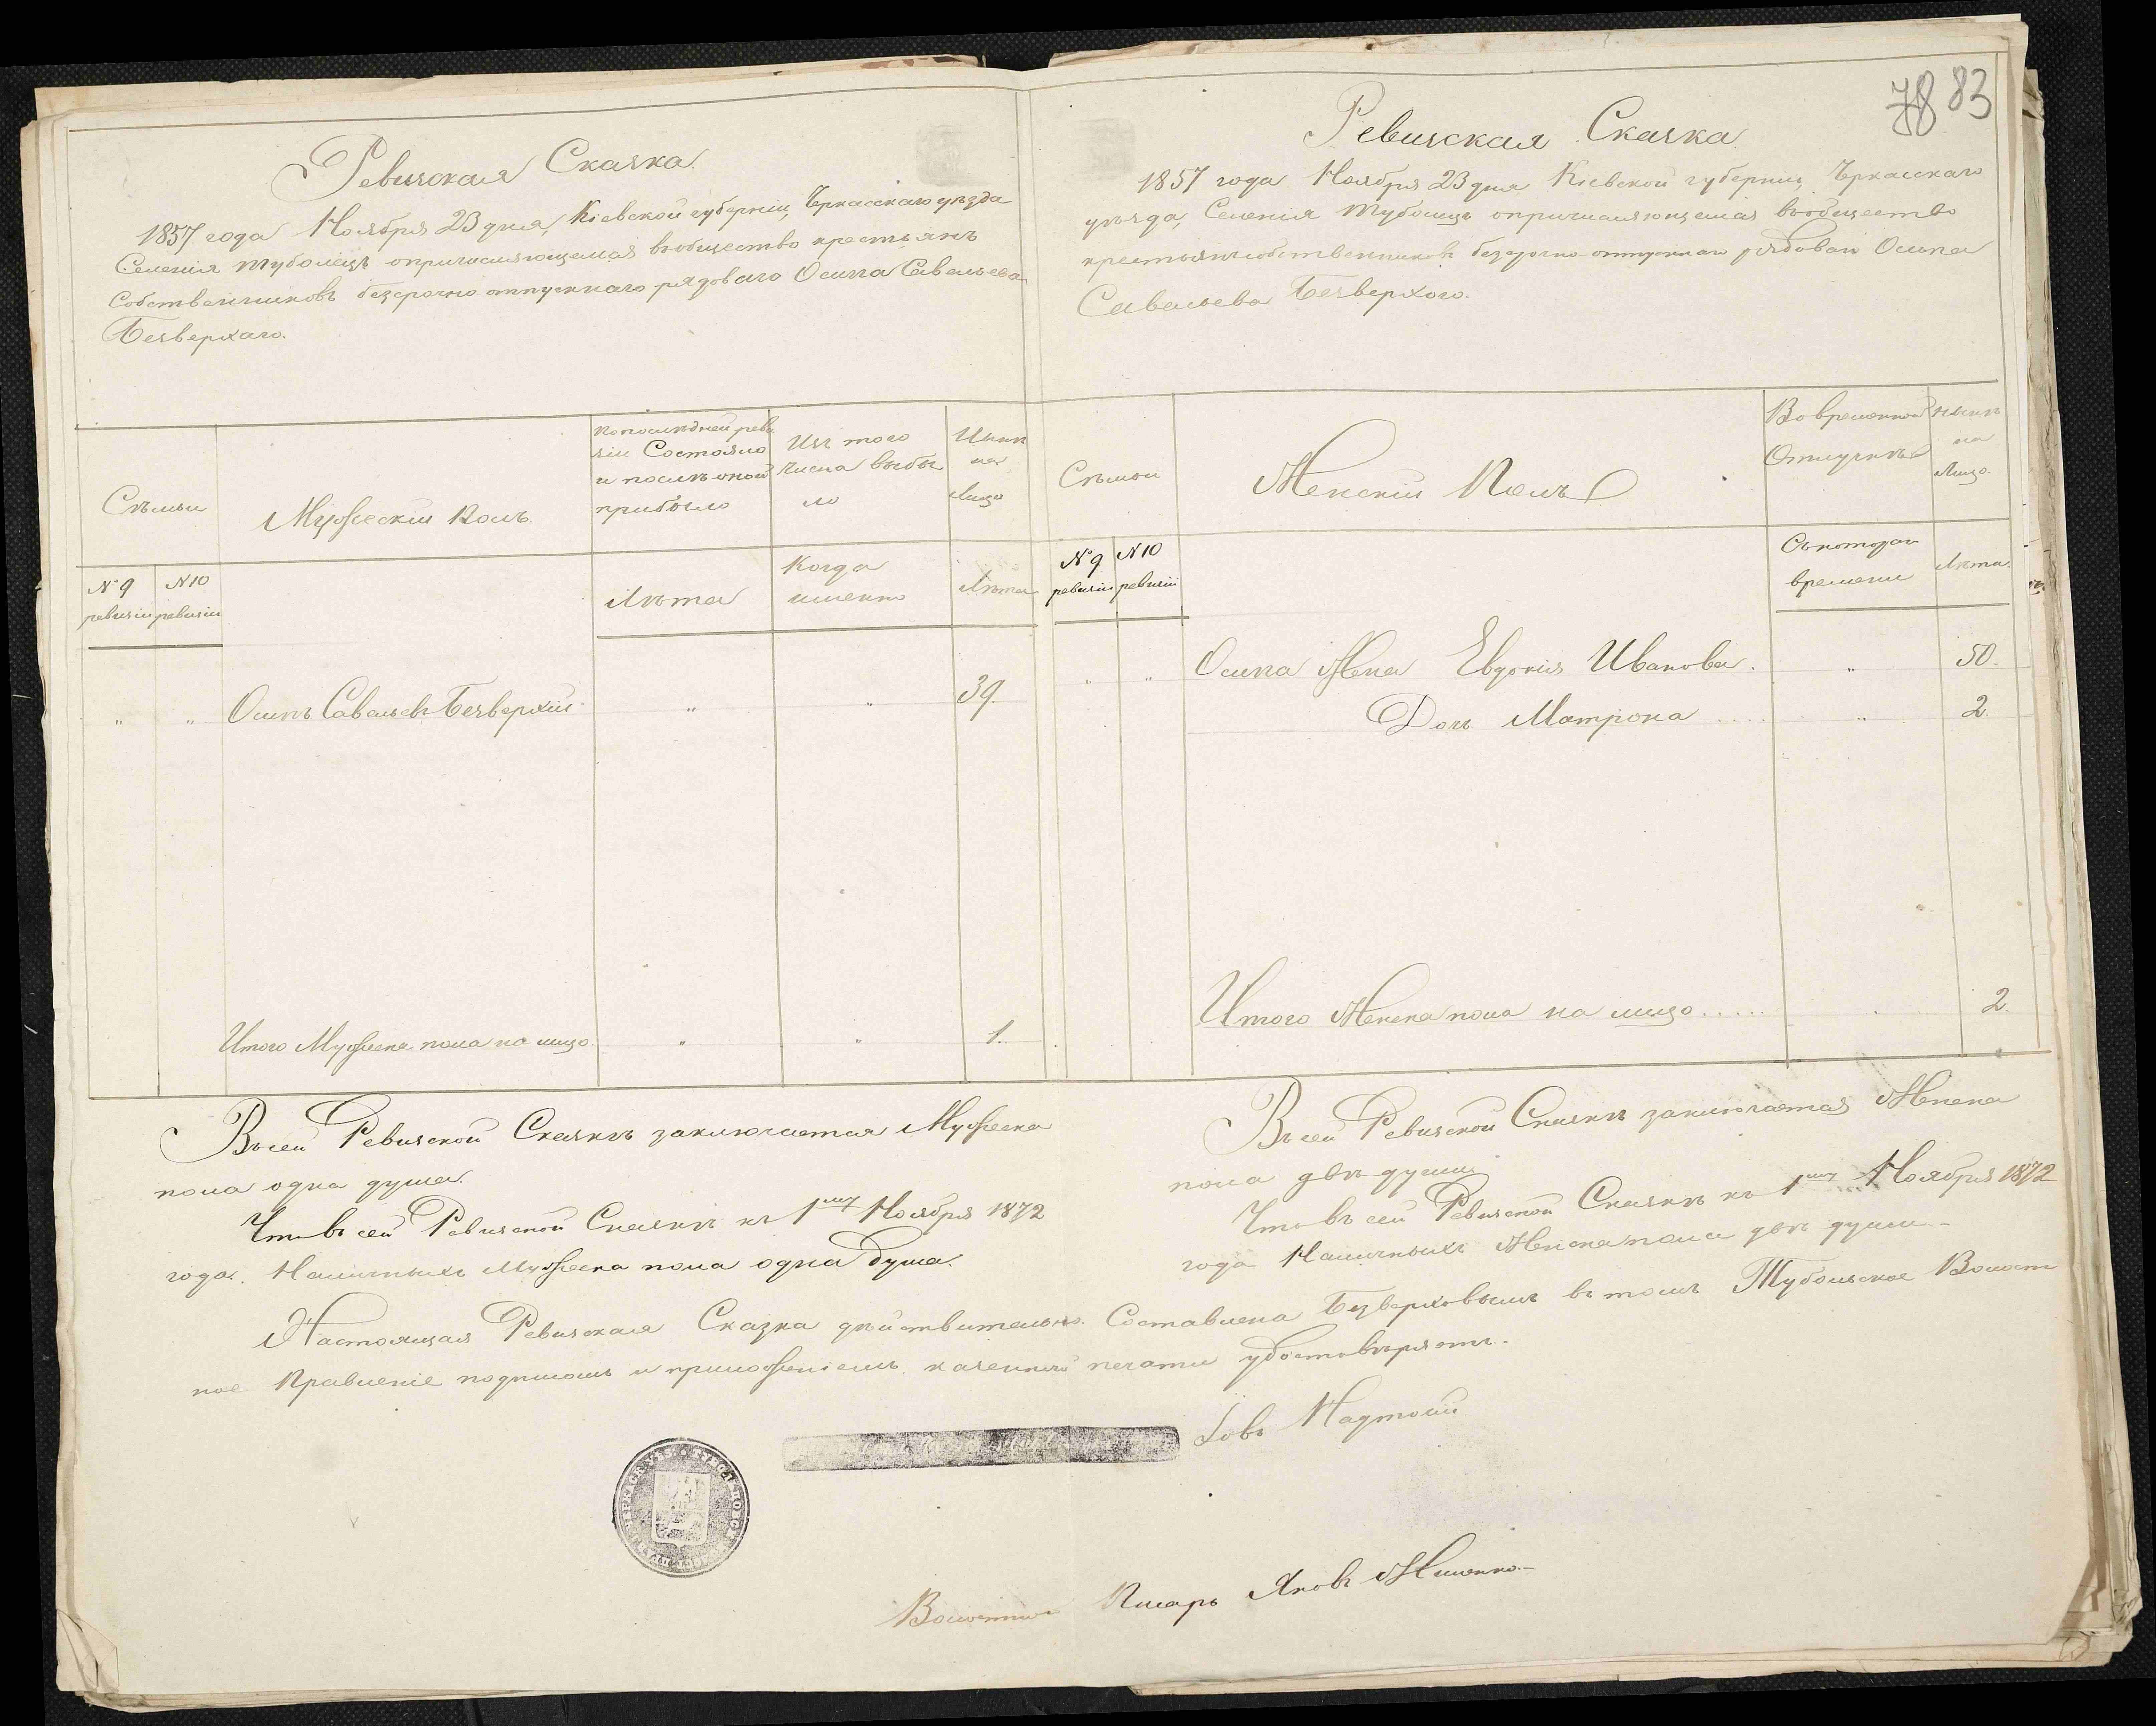 78 83
Ревизская Сказка.
1857 года Ноября 23 дня, Кіевской губерніи, Черкасскаго уѣзда
Селенія Туболецъ о причисляющемся въ общество крестьянъ
Собственниковъ безсрочно отпускнаго рядоваго Осипа Савельева
Безверхаго.
Семьи
Мужескій полъ.
По послѣдней реви
зіи Состояло
и послѣ оной
прибыло
Изъ того
числа выбы
ло
Нынѣ
на
Лицо
№ 9
ревизіи
№ 10
ревизіи
Лѣта
Когда
именно
Лѣта
" " Осипъ Савельевъ Безверхій " " 39.
Итого Мужеска пола на лицо. " " 1.
Въ сей Ревизской Сказкѣ заключается Мужеска
пола одна душа.
Что въ сей Ревизской Сказкѣ къ 1му Ноября 1872
года. Наличныхъ Мужеска пола одна душа.
Ревизская Сказка
1857 года Ноября 23 дня Кіевской губерніи, Черкасскаго
уѣзда, Селенія Туболецъ о причисляющемся въ общество
крестьянъ собственниковъ безсрочно-отпускнаго рядоваго Осипа
Савельева Безверхого.
Семьи
Женскій Полъ
Во временной
Отлучкѣ
Нынѣ
на
Лицо.
№ 9
ревизіи
№ 10
ревизіи
Съ котораго
времени
Лѣта.
" " Осипа Жена Евдокія Иванова. " 50.
Дочь Матрона .... " 2.
Итого Женска пола на лицо ..... 2.
Въ сей Ревизской Сказкѣ заключается Женска
пола двѣ души
Что въ сей Ревизской Сказкѣ къ 1му Ноября 1872
года Наличныхъ Женска пола двѣ души-
Настоящая Ревизская Сказка дѣйствительно Составлена Безверховымъ въ томъ Тубольское Волост
ное Правленіе подписомъ и приложеніемъ казенной печати удостовѣряетъ.
Іовъ
Писарь Яковъ